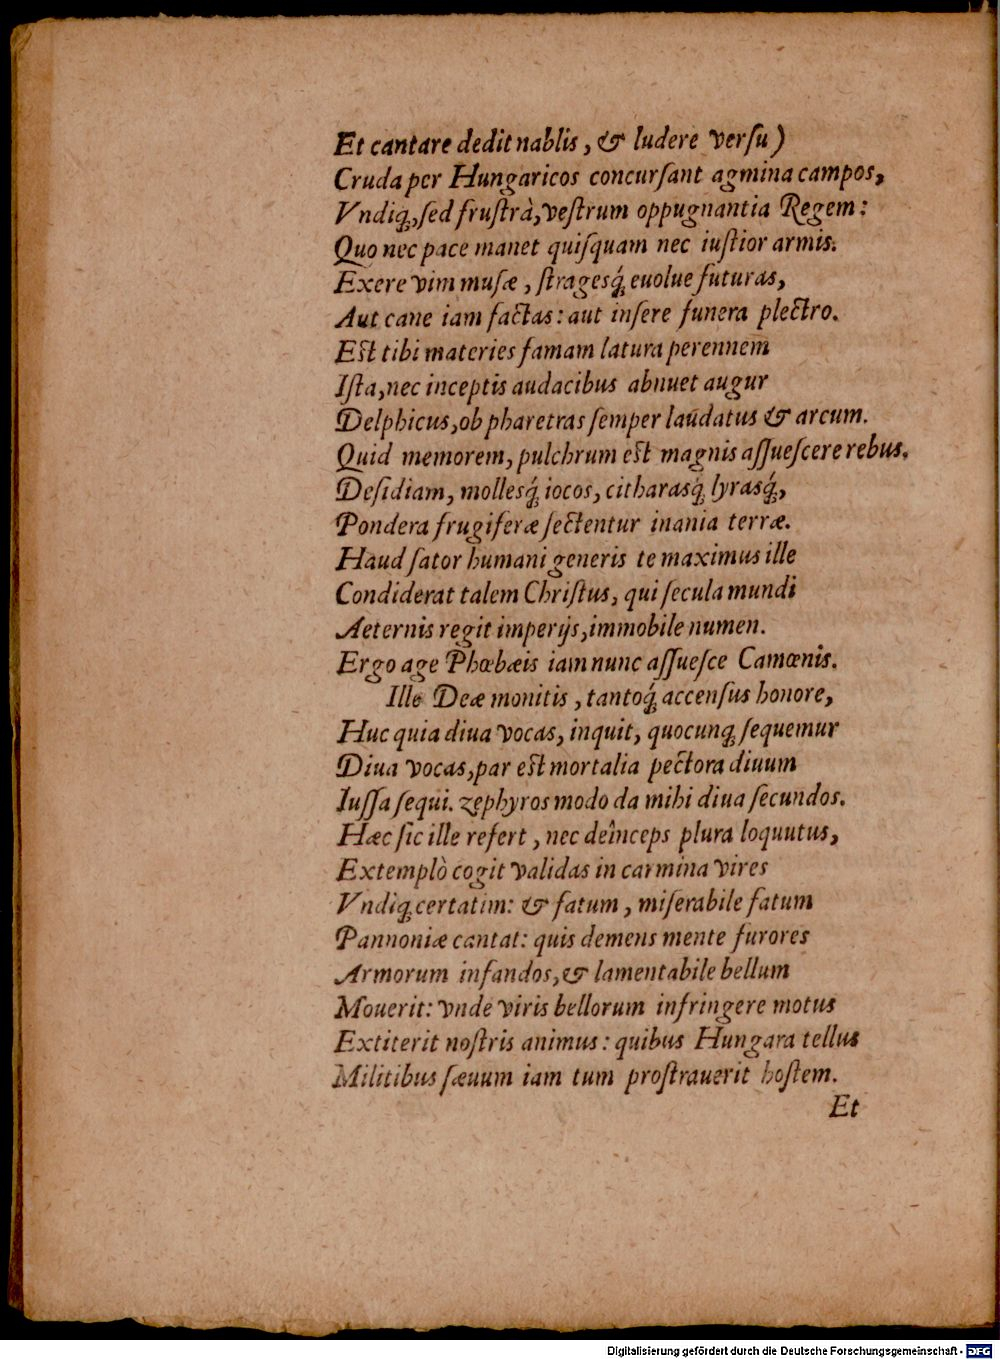 Et cantare dedit nablis, & ludere verſu)
Cruda per Hungaricos concurſant agmina campos,
Vndiq́;, ſed fruſtrà, veſtrum oppugnantia Regem:
Quo nec pace manet quiſquam nec iuſtior armis.
Exere vim muſæ, ſtragesq́; euolue futuras,
Aut cane iam factas: aut inſere funera plectro.
Eſt tibi materies famam latura perennem
Iſta, nec inceptis audacibus abnuet augur
Delphicus, ob pharetras ſemper laudatus & arcum.
Quid memorem, pulchrum eſt magnis aſſueſcere rebus.
Deſidiam, mollesq́; iocos, citharasq́; lyrasq́;,
Pondera frugiferæ ſectentur inania terræ.
Haud ſator humani generis te maximus ille
Condiderat talem Chriſtus, qui ſecula mundi
Aeternis regit imperijs, immobile numen.
Ergo age Phœbæis iam nunc aſſueſce Camœnis.
Ille Deæ monitis, tantoq́; accenſus honore,
Huc quia diua vocas, inquit, quocunq; ſequemur
Diua vocas, par eſt mortalia pectora diuum
Iuſſa ſequi. zephyros modo da mihi diua ſecundos.
Hæc ſic ille refert, nec deînceps plura loquutus,
Extemplò cogit validas in carmina vires
Vndiq; certatim: & fatum, miſerabile fatum
Pannoniæ cantat: quis demens mente furores
Armorum infandos, & lamentabile bellum
Mouerit: vnde viris bellorum infringere motus
Extiterit noſtris animus: quibus Hungara tellus
Militibus ſæuum iam tum proſtrauerit hoſtem.
Et
Digitalisierung gefördert durch die Deutsche Forschungsgemeinschaft - DFG